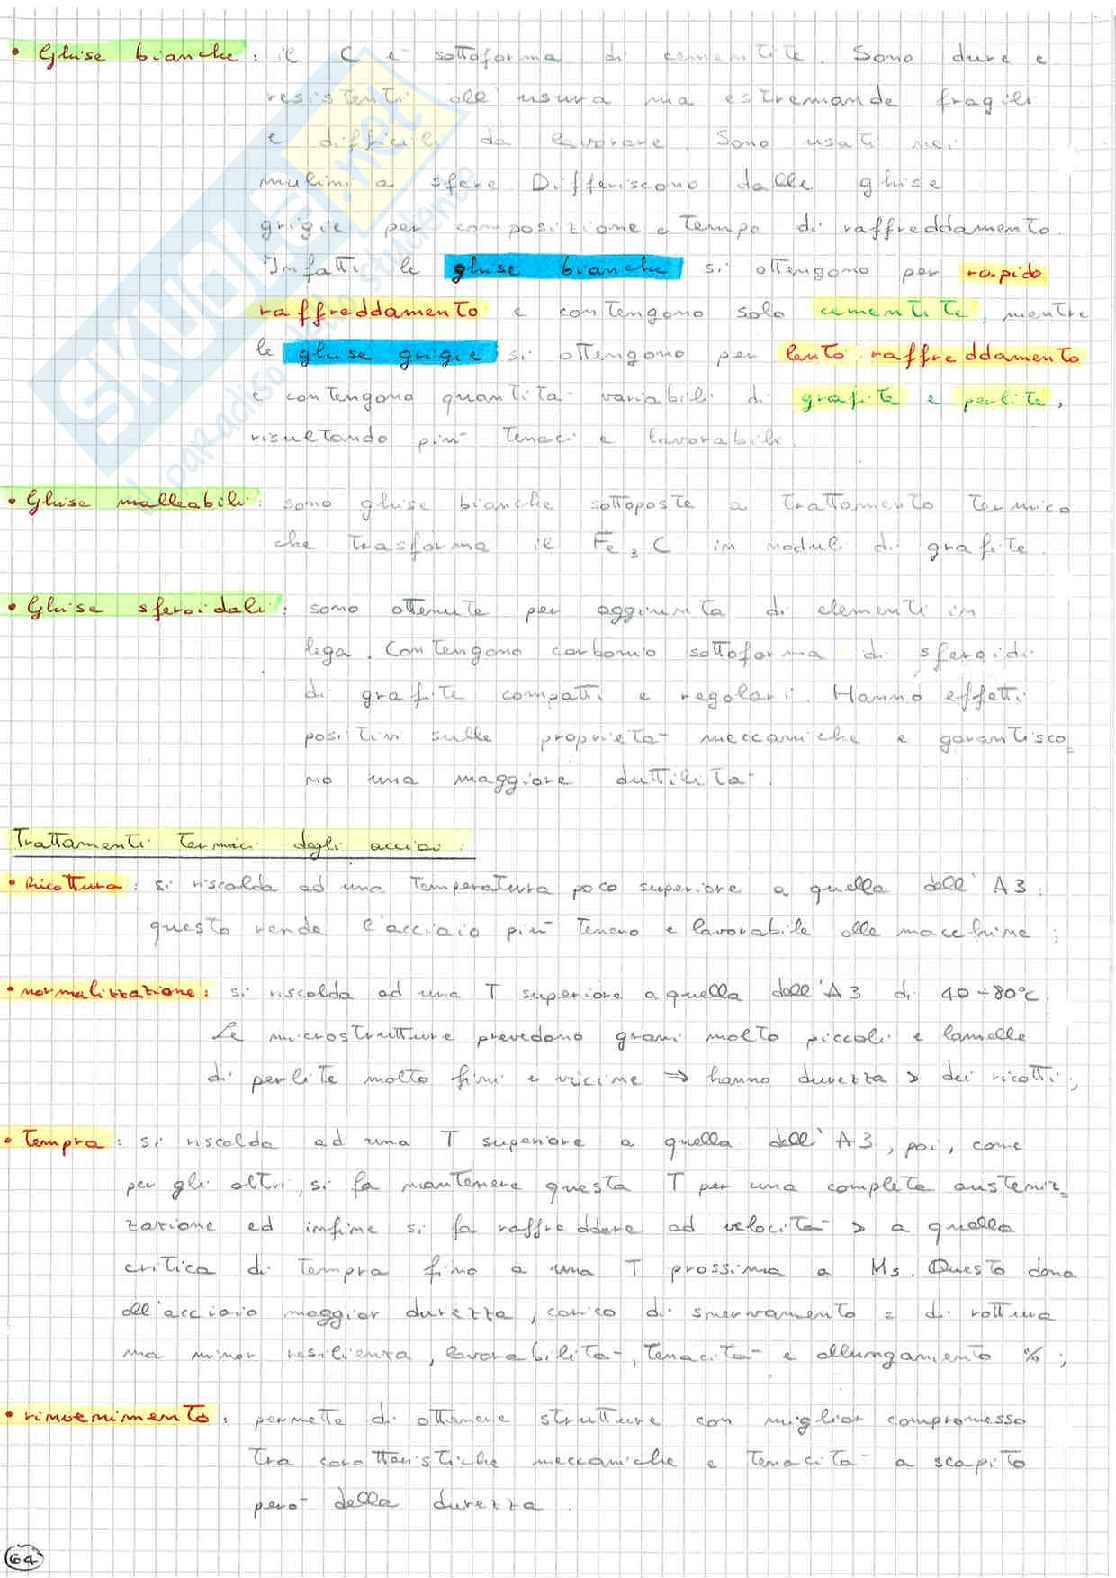 • Ghise bianche: il C è sottoforma di cementite. Sono dure e
resistenti all'usura ma estremande fragili
e difficili da lavorare. Sono usati nei
mulini a sfere. Differiscono dalle ghise
grigie per composizione e tempo di raffreddamento.
Infatti le ghise bianche si ottengono per rapido
raffreddamento e contengono solo cementite, mentre
le ghise grigie si ottengono per lento raffreddamento
e contengono quantità variabili di grafite e perlite,
risultando più tenaci e lavorabili.
• Ghise malleabili: sono ghise bianche sottoposte a trattamento termico
che trasforma il Fe3C in noduli di grafite.
• Ghise sferoidali: sono ottenute per aggiunta di elementi in
lega. Contengono carbonio sottoforma di sferoidi
di grafite compatti e regolari. Hanno effetti
positivi sulle proprietà meccaniche e garantisco=
no una maggiore duttilità.
Trattamenti termici degli acciai:
• Ricottura: si riscalda ad una temperatura poco superiore a quella dell'A3.
questo rende l'acciaio più tenero e lavorabile alle macchine;
• normalizzazione: si riscalda ad una T superiore a quella dell'A3 di 40÷80°C.
Le microstrutture prevedono grani molto piccoli e lamelle
di perlite molto fini e vicine ⇒ hanno durezza > dei ricotti;
• Tempra: si riscalda ad una T superiore a quella dell'A3, poi, come
per gli altri, si fa mantenere questa T per una completa austeniz=
zazione ed infine si fa raffreddare ad velocità > a quella
critica di tempra fino a una T prossima a Ms. Questo dona
all'acciaio maggior durezza, carico di snervamento e di rottura
ma minor resilienza, lavorabilità, tenacità e allungamento %;
• rinvenimento: permette di ottenere strutture con miglior compromesso
tra caratteristiche meccaniche e tenacità a scapito
però della durezza.
64
SKUOLA.net
il paradiso dello studente